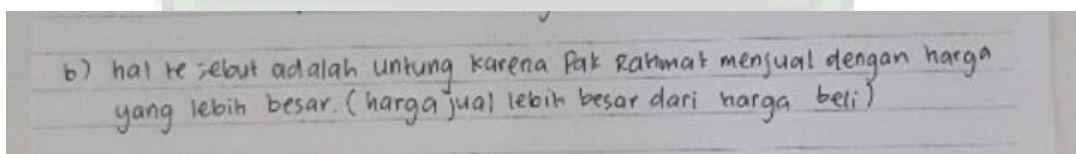 b) hal tersebut adalah untung karena Pak Rahmat menjual dengan harga
yang lebih besar. (harga jual lebih besar dari harga beli)